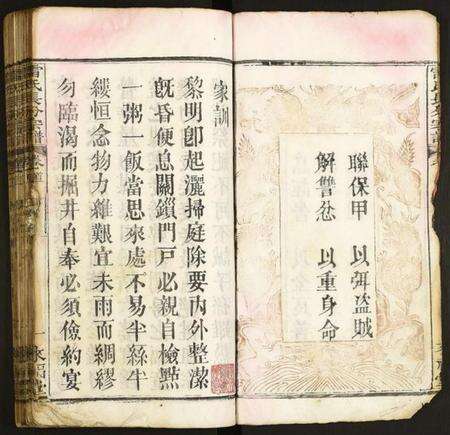 聯保甲 以弭盗賊
解讐忿 以重身命
家訓
黎明卽起灑掃庭除要内外整潔
旣昏便息關鎖門戸必親自檢㸃
一粥一飯當思來處不易半絲半
縷恒念物力維艱宜未雨而綢繆
勿臨渴而掘井自奉必須儉約宴